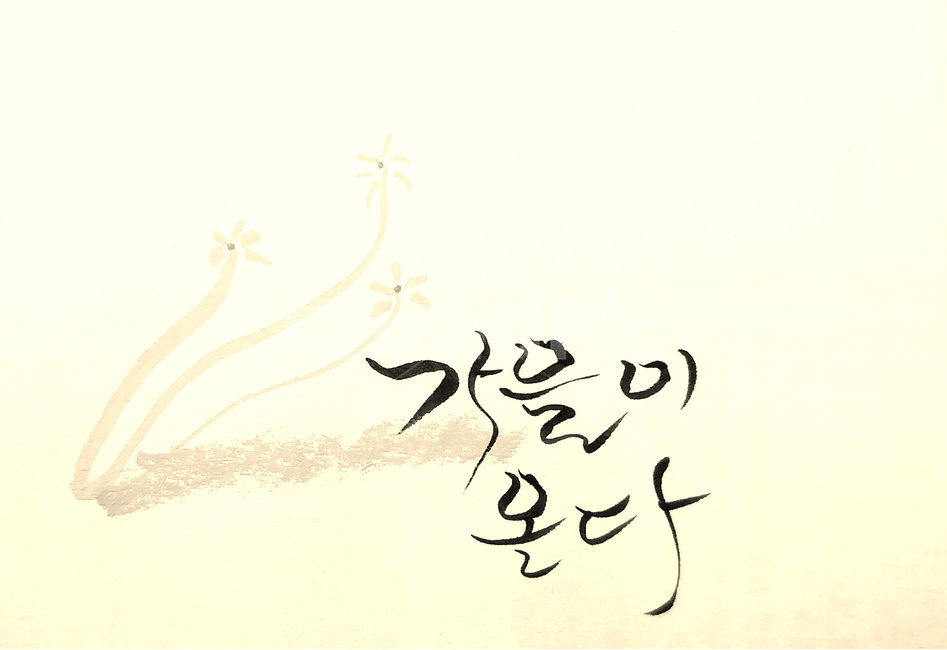 가을이
온다